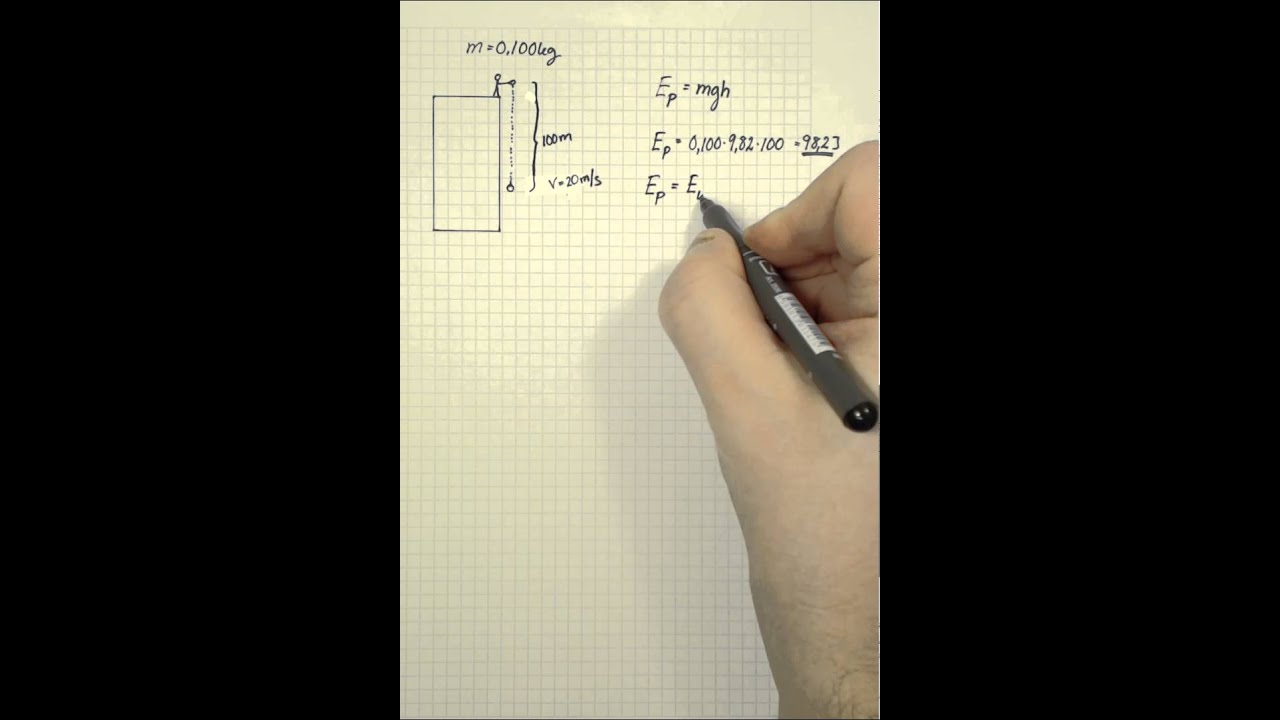 m = 0,100kg
100m
v = 20m/s
E_p = mgh
E_p = 0,100·9,82·100 = 98,2J
E_p = E